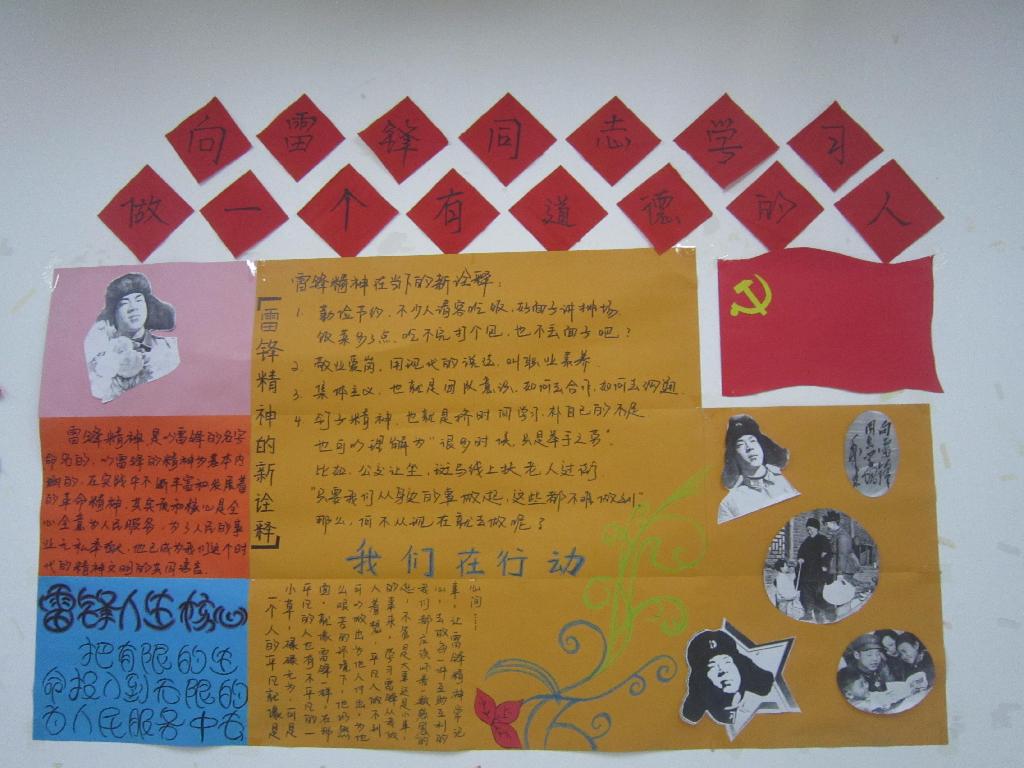 向雷锋同志学习
做一个有道德的人
雷锋精神在当下的新诠释:
【雷锋精神的新诠释】
1. 勤俭节约，不少人请客吃饭，好面子讲排场
饭菜多点，吃不完打个包，也不丢面子吧？
2. 敬业爱岗，用现代的说法，叫职业素养
3. 集体主义，也就是团队意识，如何去合作，如何去沟通
4. 钉子精神，也就是挤时间学习，补自己的不足
也可以理解为"很多时候，只是举手之劳"
比如，公交让座，斑马线上扶老人过街
"只要我们从身边的事做起，这些都不难做到"
那么，何不从现在就去做呢？
我们在行动
雷锋精神是以雷锋的名字
命名的，以雷锋的精神为基本内
涵的，在实践中不断丰富和发展着
的革命精神，其实质和核心是全
心全意为人民服务，为了人民的事
业无私奉献，也已成为我们这个时
代的精神文明的共同语言
雷锋人生核心
把有限的生
命投入到无限的
为人民服务中去
心间……
事，让雷锋精神常记
一个人的平凡就像是
小草，碌碌无为，可是
平凡的人也有不平凡的一
面，就像雷锋一样，在那
么艰苦的环境下，他仍然
可以做出为他人付出，为他
人着想，平凡人做不到
的事来，学习雷锋从身边做
起，不管是大事还是小事，
向雷锋同志学习